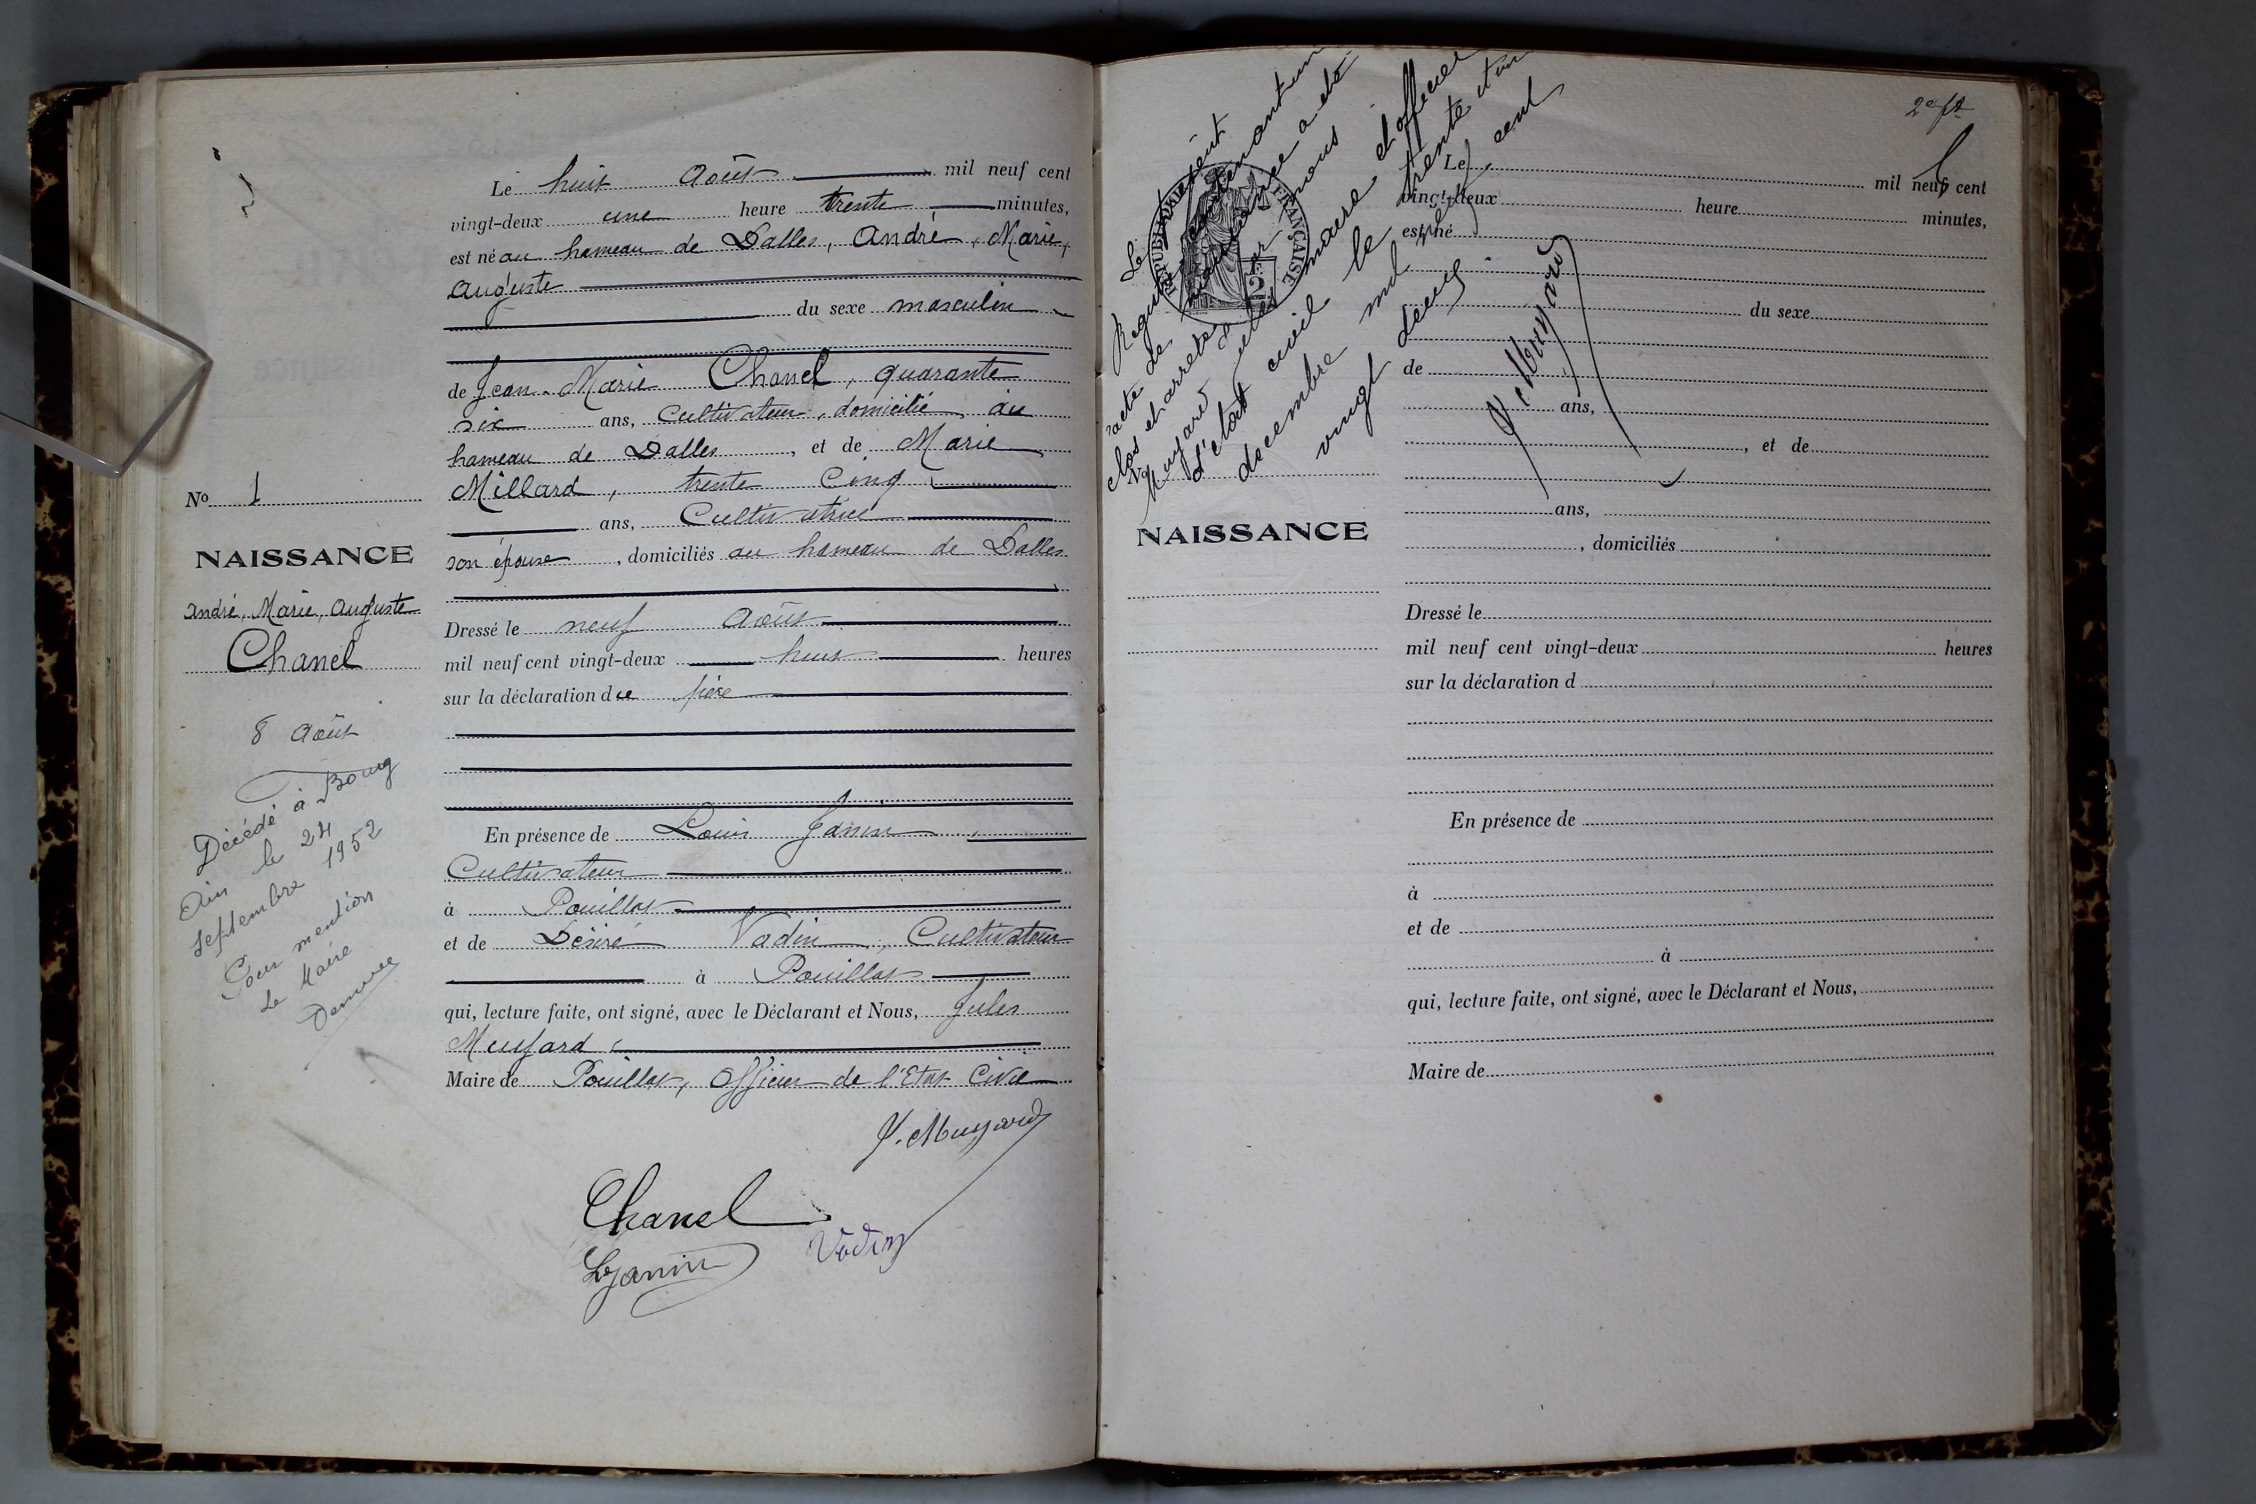 Le huit Août mil neuf cent
vingt-deux une heure trente minutes,
est né au hameau de Dalles, André, Marie,
Auguste
du sexe masculin
de Jean-Marie Chanel, quarante
six ans, Cultivateur, domicilié au
hameau de Dalles, et de Marie
Millard, trente Cinq
ans, Cultivatrice
son épouse, domiciliés au hameau de Dalles
Dressé le neuf Août
mil neuf cent vingt-deux huit heures
sur la déclaration du père
En présence de Louis Janin
Cultivateur
à Pouillat
et de Désiré Vadin, Cultivateur
à Pouillat
qui, lecture faite, ont signé, avec le Déclarant et Nous, Jules
Muyard,
Maire de Pouillat, Officier de l'Etat Civil
J. Muyard
Chanel
L Janin
Vadin
No 1
NAISSANCE
André, Marie, Auguste
Chanel
8 Août
Décédé à Bourg
Ain le 24
septembre 1952
Pour mention
Le Maire
2e ft
Le présent
Registre contenant un
acte de naissance a été
clos et arrêté par nous
Muyard Jules maire et officier
d'état civil le trente et un
decembre mil neuf cent
vingt deux
J. Muyard
RÉPUBLIQUE FRANÇAISE
2
Le mil neuf cent
vingt-deux heure minutes,
est né
du sexe
de
ans,
, et de
ans,
, domiciliés
No
NAISSANCE
Dressé le
mil neuf cent vingt-deux heures
sur la déclaration d
En présence de
à
et de
à
qui, lecture faite, ont signé, avec le Déclarant et Nous,
Maire de